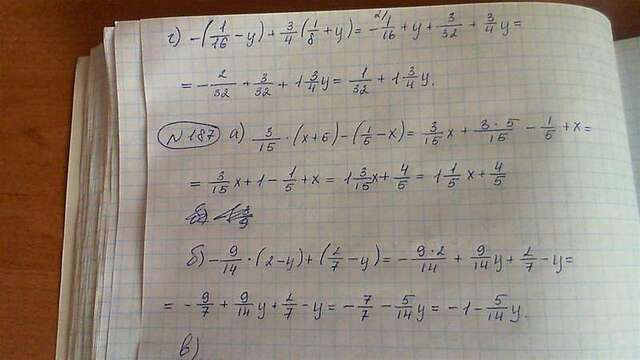 г) -(1/16 - y) + 3/4(1/8 + y) = -1/16 + y + 3/32 + 3/4y =
= -2/32 + 3/32 + 1 3/4y = 1/32 + 1 3/4y.
№187 а) 3/15 · (x+5) - (1/5 - x) = 3/15x + 3·5/15 - 1/5 + x =
= 3/15x + 1 - 1/5 + x = 1 3/15x + 4/5 = 1 1/5x + 4/5
б) -9/14 · (2-y) + (2/7 - y) = -9·2/14 + 9/14y + 2/7 - y =
= -9/7 + 9/14y + 2/7 - y = -7/7 - 5/14y = -1 - 5/14y.
в)